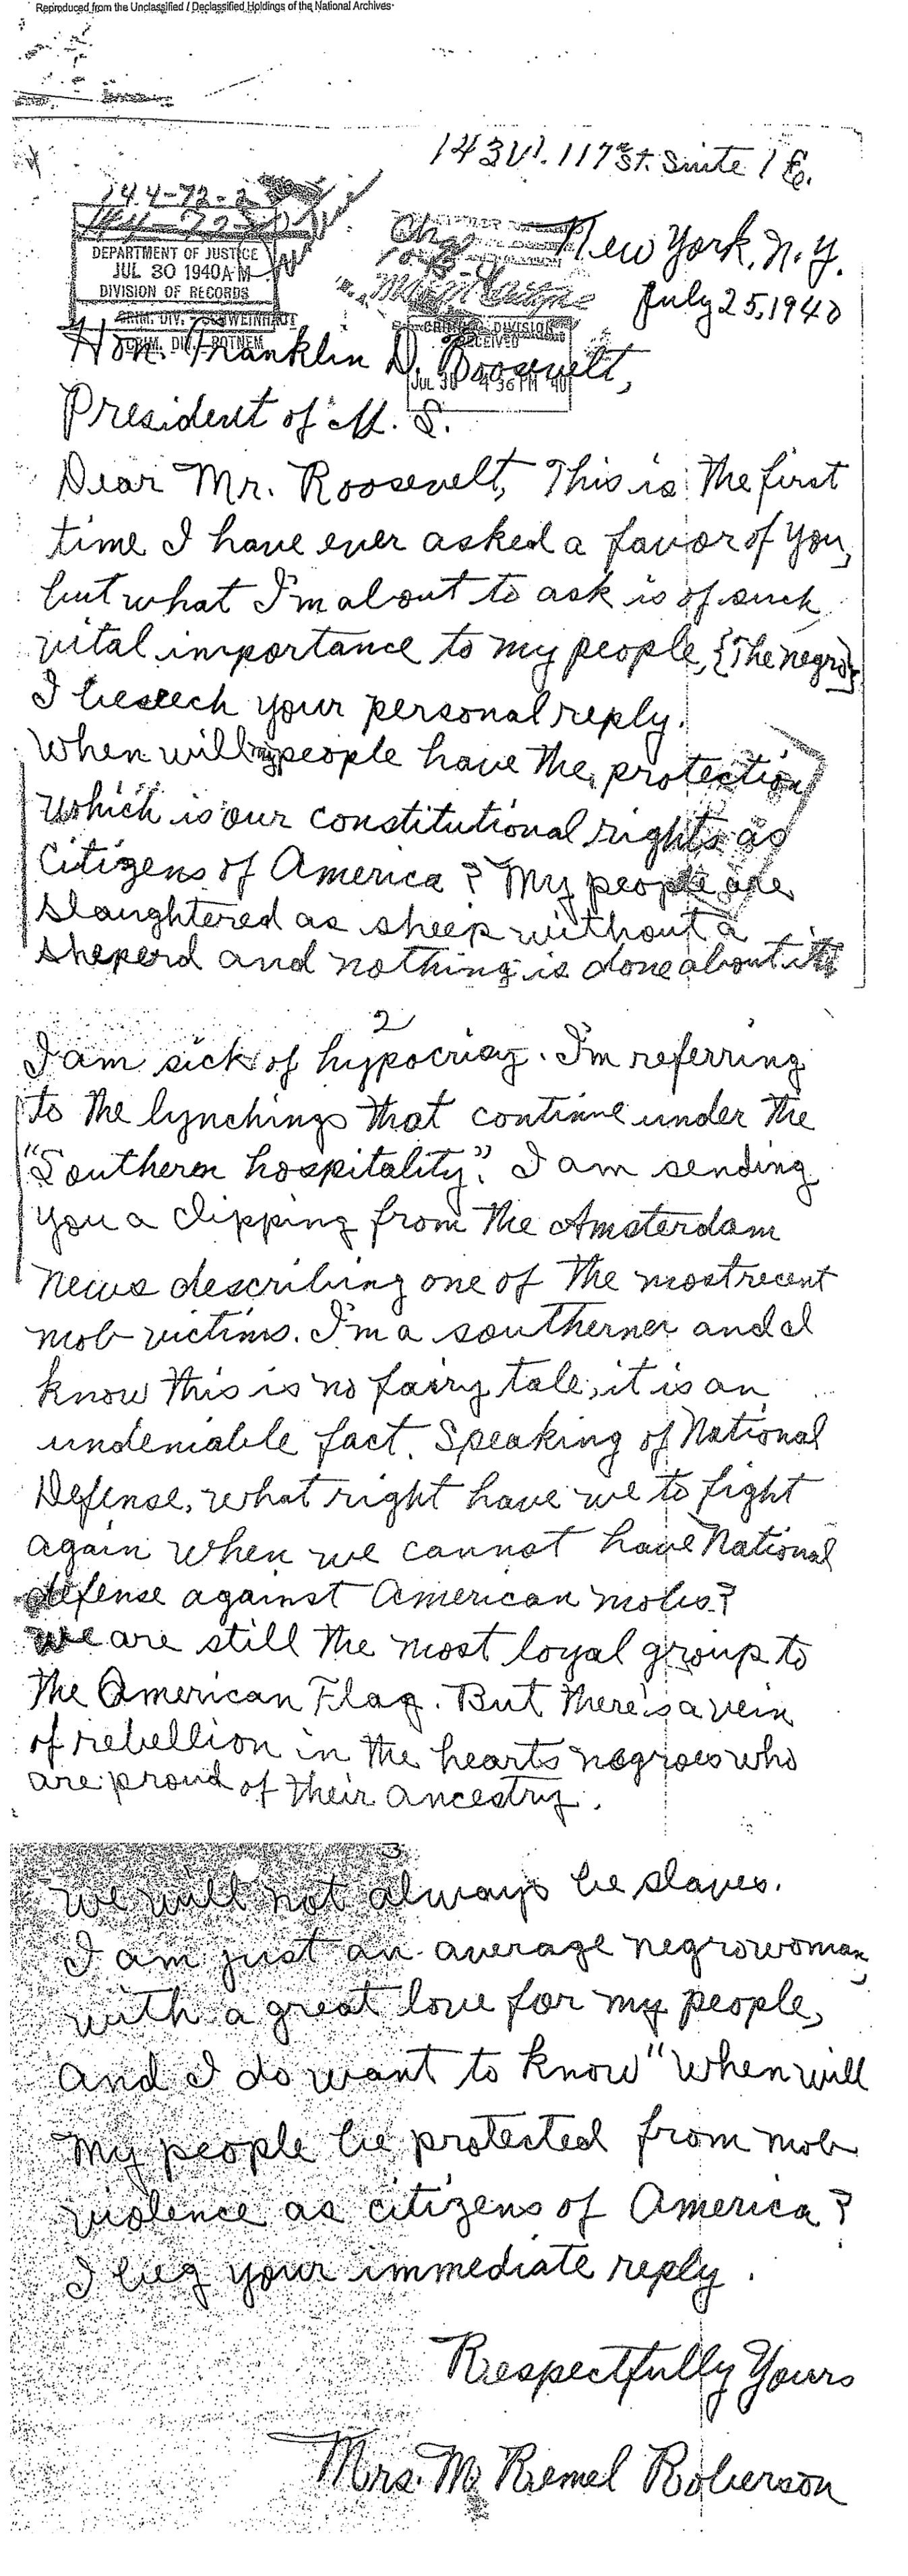 Reproduced from the Unclassified / Declassified Holdings of the National Archives
143 W. 117th St. Suite 1 E.
144-72-2
New York, N.Y.
DEPARTMENT OF JUSTICE
JUL 30 1940 A.M
DIVISION OF RECORDS
July 25, 1940
CRIM. DIV.
DIVISION
RECEIVED
Hon. Franklin D. Roosevelt,
JUL 30 4 36 PM '40
President of U. S.
Dear Mr. Roosevelt, This is the first
time I have ever asked a favor of you,
but what I'm about to ask is of such
vital importance to my people, {The negro}
I beseech your personal reply.
When will my people have the protection
which is our constitutional rights as
Citizens of America? My people are
slaughtered as sheep without a
sheperd and nothing is done about it
2
I am sick of hypocrisy. I'm referring
to the lynchings that continue under the
"Southern hospitality". I am sending
you a clipping from the Amsterdam
News describing one of the most recent
mob victims. I'm a southerner and I
know this is no fairy tale, it is an
undeniable fact. Speaking of National
Defense, what right have we to fight
again when we cannot have National
defense against American mobs?
we are still the most loyal group to
the American Flag. But there's a vein
of rebellion in the hearts negroes who
are proud of their ancestry.
3
we will not always be slaves.
I am just an average negro woman,
with a great love for my people,
And I do want to know "when will
my people be protected from mob
violence as citizens of America?
I beg your immediate reply.
Respectfully Yours
Mrs. M. Remel Roberson